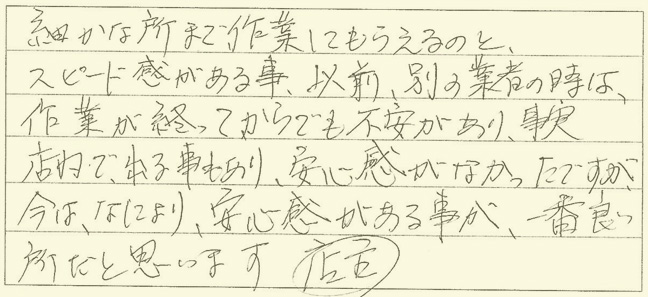 細かな所まで作業してもらえるのと、
スピード感がある事、以前、別の業者の時は、
作業が経ってからでも不安があり、事実
店内で、出る事もあり、安心感がなかったですが、
今は、なにより、安心感がある事が、一番良い
所だと思います 店主